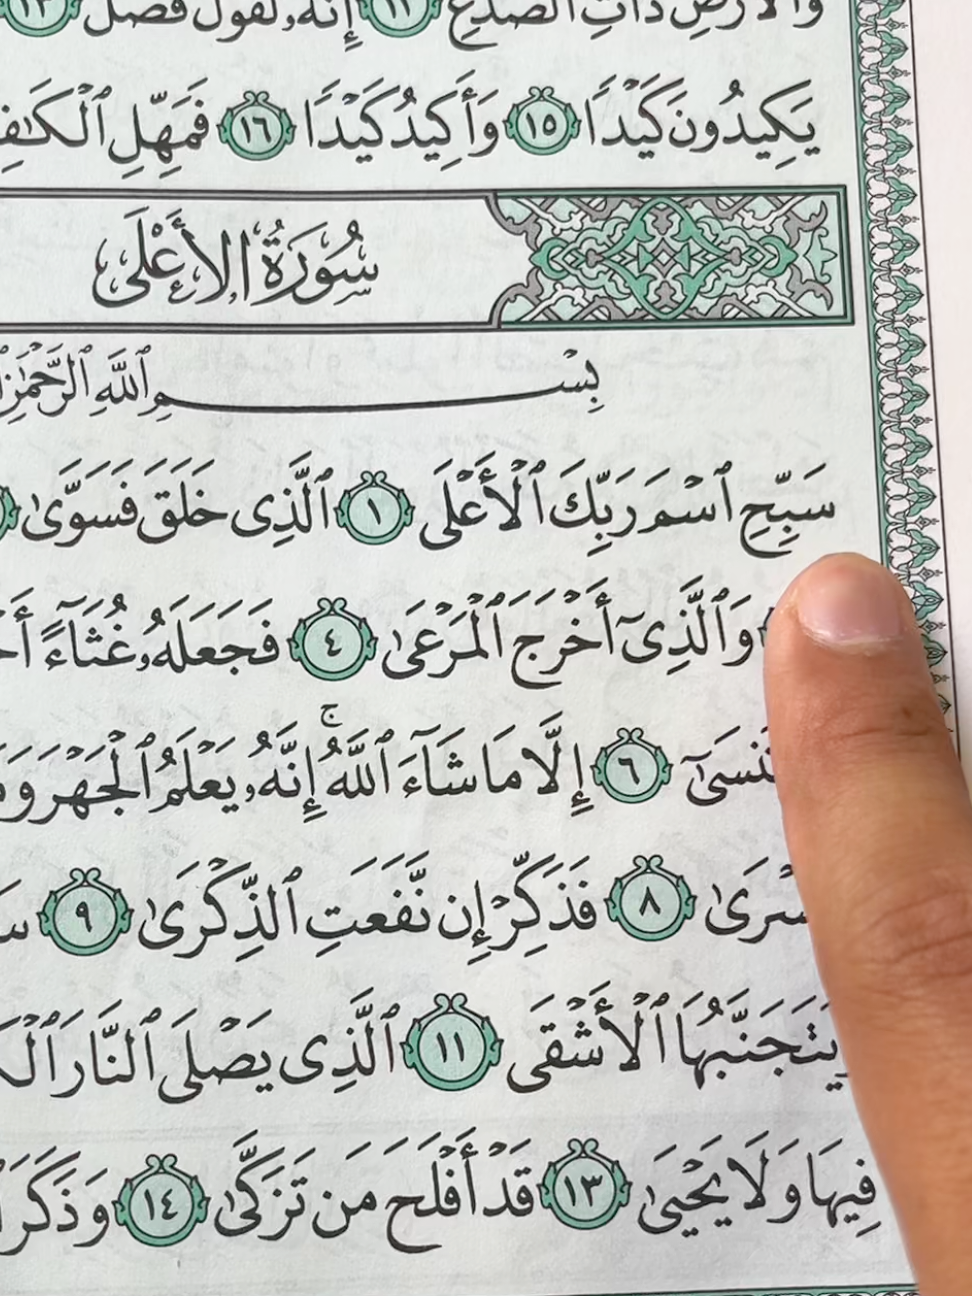 وَٱلْأَرْضِ ذَاتِ ٱلصَّدْعِ ١٢ إِنَّهُۥ لَقَوْلٌ فَصْلٌ ١٣
يَكِيدُونَ كَيْدًا ١٥ وَأَكِيدُ كَيْدًا ١٦ فَمَهِّلِ
سُورَةُ الأَعْلَى
بِسْمِ ٱللَّهِ ٱلرَّحْمَٰنِ
سَبِّحِ ٱسْمَ رَبِّكَ ٱلْأَعْلَى ١ ٱلَّذِى خَلَقَ فَسَوَّىٰ
وَٱلَّذِىٓ أَخْرَجَ ٱلْمَرْعَىٰ ٤ فَجَعَلَهُۥ غُثَآءً
٦ إِلَّا مَا شَآءَ ٱللَّهُ ۚ إِنَّهُۥ يَعْلَمُ ٱلْجَهْرَ
٨ فَذَكِّرْ إِن نَّفَعَتِ ٱلذِّكْرَىٰ ٩
ٱلْأَشْقَى ١١ ٱلَّذِى يَصْلَى ٱلنَّارَ
فِيهَا وَلَا يَحْيَىٰ ١٣ قَدْ أَفْلَحَ مَن تَزَكَّىٰ ١٤